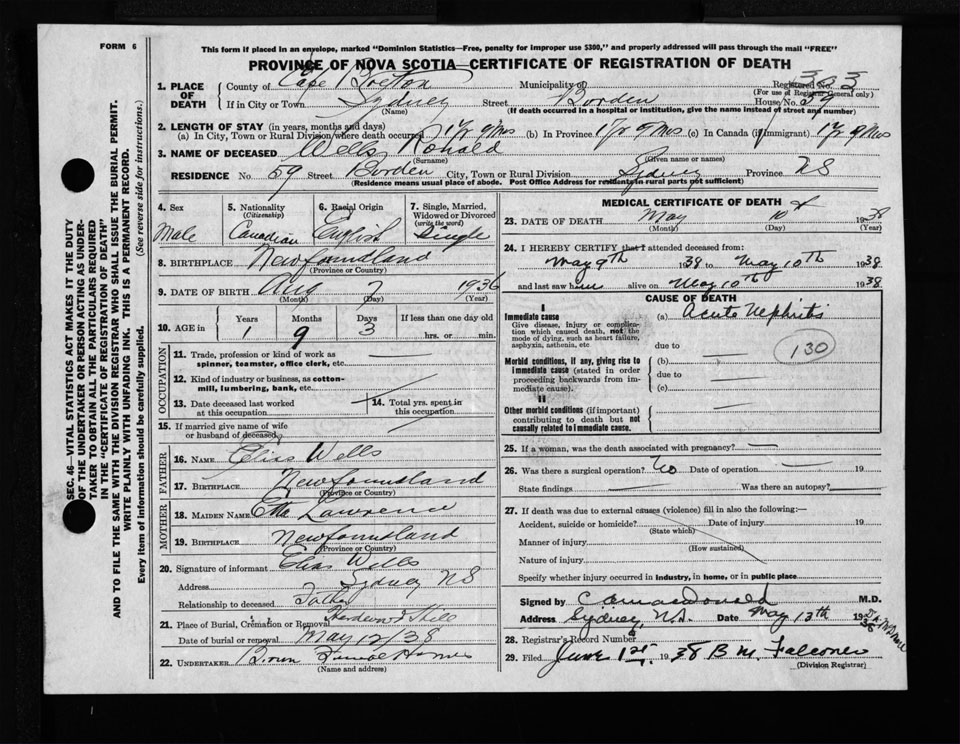 FORM 6
This form if placed in an envelope, marked "Dominion Statistics—Free, penalty for improper use $300," and properly addressed will pass through the mail "FREE"
PROVINCE OF NOVA SCOTIA—CERTIFICATE OF REGISTRATION OF DEATH
1. PLACE OF DEATH
County of Cape Breton Municipality of Registered No. 303
(For use of Registrar General only)
If in City or Town Sydney Street Borden House No. 59
(Name) (If death occurred in a hospital or institution, give the name instead of street and number)
2. LENGTH OF STAY (in years, months and days)
(a) In City, Town or Rural Division where death occurred 1 Yr 9 Mos (b) In Province 1 Yr 9 Mos (c) In Canada (if Immigrant) 1 Yr 9 Mos
3. NAME OF DECEASED Wells Ronald
(Surname) (Given name or names)
RESIDENCE No. 59 Street Borden City, Town or Rural Division Sydney Province NS
(Residence means usual place of abode. Post Office Address for residents in rural parts not sufficient)
4. Sex Male
5. Nationality (Citizenship) Canadian
6. Racial Origin English
7. Single, Married, Widowed or Divorced (write the word) Single
8. BIRTHPLACE Newfoundland
(Province or Country)
9. DATE OF BIRTH Aug 7 1936
(Month) (Day) (Year)
10. AGE in Years Months Days If less than one day old
1 9 3 hrs. or min.
OCCUPATION
11. Trade, profession or kind of work as spinner, teamster, office clerk, etc.
12. Kind of industry or business, as cotton-mill, lumbering, bank, etc.
13. Date deceased last worked at this occupation
14. Total yrs. spent in this occupation
15. If married give name of wife or husband of deceased
FATHER
16. NAME Elias Wells
17. BIRTHPLACE Newfoundland
(Province or Country)
MOTHER
18. MAIDEN NAME Etta Lawrence
19. BIRTHPLACE Newfoundland
(Province or Country)
20. Signature of informant Elias Wells
Address Sydney NS
Relationship to deceased Father
21. Place of Burial, Cremation or Removal Hardwood Hill
Date of burial or removal May 12/38
22. UNDERTAKER Funeral Homes
(Name and address)
MEDICAL CERTIFICATE OF DEATH
23. DATE OF DEATH May 10th 1938
(Month) (Day) (Year)
24. I HEREBY CERTIFY that I attended deceased from:
May 9th 1938 to May 10th 1938
and last saw him alive on May 10th 1938
CAUSE OF DEATH
I
Immediate cause (a) Acute Nephritis
Give disease, injury or complication which caused death, not the mode of dying, such as heart failure, asphyxia, asthenia, etc.
due to
130
Morbid conditions, if any, giving rise to immediate cause (stated in order proceeding backwards from immediate cause).
(b)
due to
(c)
II
Other morbid conditions (if important) contributing to death but not causally related to immediate cause.
25. If a woman, was the death associated with pregnancy?
26. Was there a surgical operation? No Date of operation 19
State findings Was there an autopsy?
27. If death was due to external causes (violence) fill in also the following:—
Accident, suicide or homicide? Date of injury 19
(State which)
Manner of injury
(How sustained)
Nature of injury
Specify whether injury occurred in industry, in home, or in public place
Signed by M.D.
Address Sydney, N.S. Date May 13th 1938
28. Registrar's Record Number
29. Filed June 1st 1938 B M Falconer
(Division Registrar)
SEC. 46—VITAL STATISTICS ACT MAKES IT THE DUTY
OF THE UNDERTAKER OR PERSON ACTING AS UNDERTAKER
TO OBTAIN ALL THE PARTICULARS REQUIRED
IN THE "CERTIFICATE OF REGISTRATION OF DEATH"
AND TO FILE THE SAME WITH THE DIVISION REGISTRAR WHO SHALL ISSUE THE BURIAL PERMIT.
WRITE PLAINLY WITH UNFADING INK. THIS IS A PERMANENT RECORD.
Every item of Information should be carefully supplied. (See reverse side for instructions.)